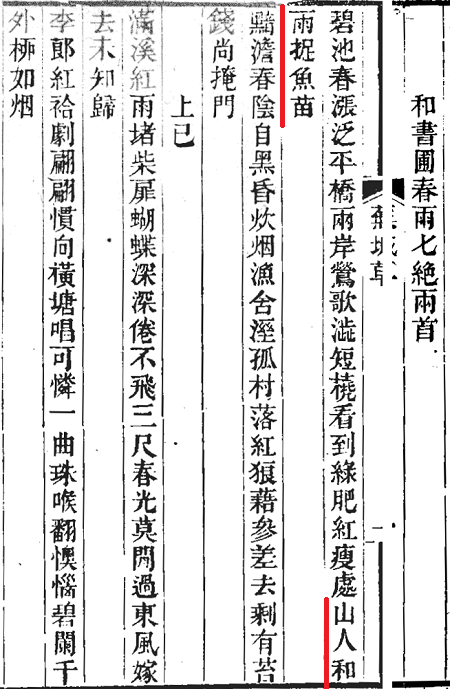 和書圃春雨七絶兩首
蕪城草
二
碧池春漲泛平橋兩岸鶯歌澁短橈看到綠肥紅瘦處山人和
雨捉魚苗
黯澹春陰自黑昏炊烟漁舍溼孤村落紅狼藉參差去剩有苔
錢尚掩門
上巳
滿溪紅雨堵柴扉蝴蝶深深倦不飛三尺春光莫閒過東風嫁
去未知歸
李郞紅袷劇翩翩慣向橫塘唱可憐一曲珠喉翻懊惱碧闌千
外柳如烟